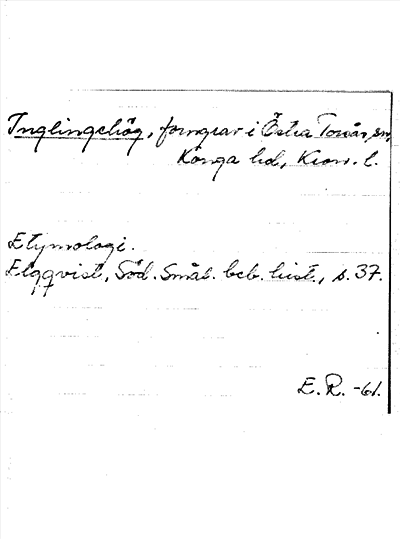 Inglingehög, forngrav i Östra Torsås sn,
Konga hd, Kron. l.
Etymologi.
Elqqvist, Söd. Smål. beb. hist., s. 37.
E. R. -61.